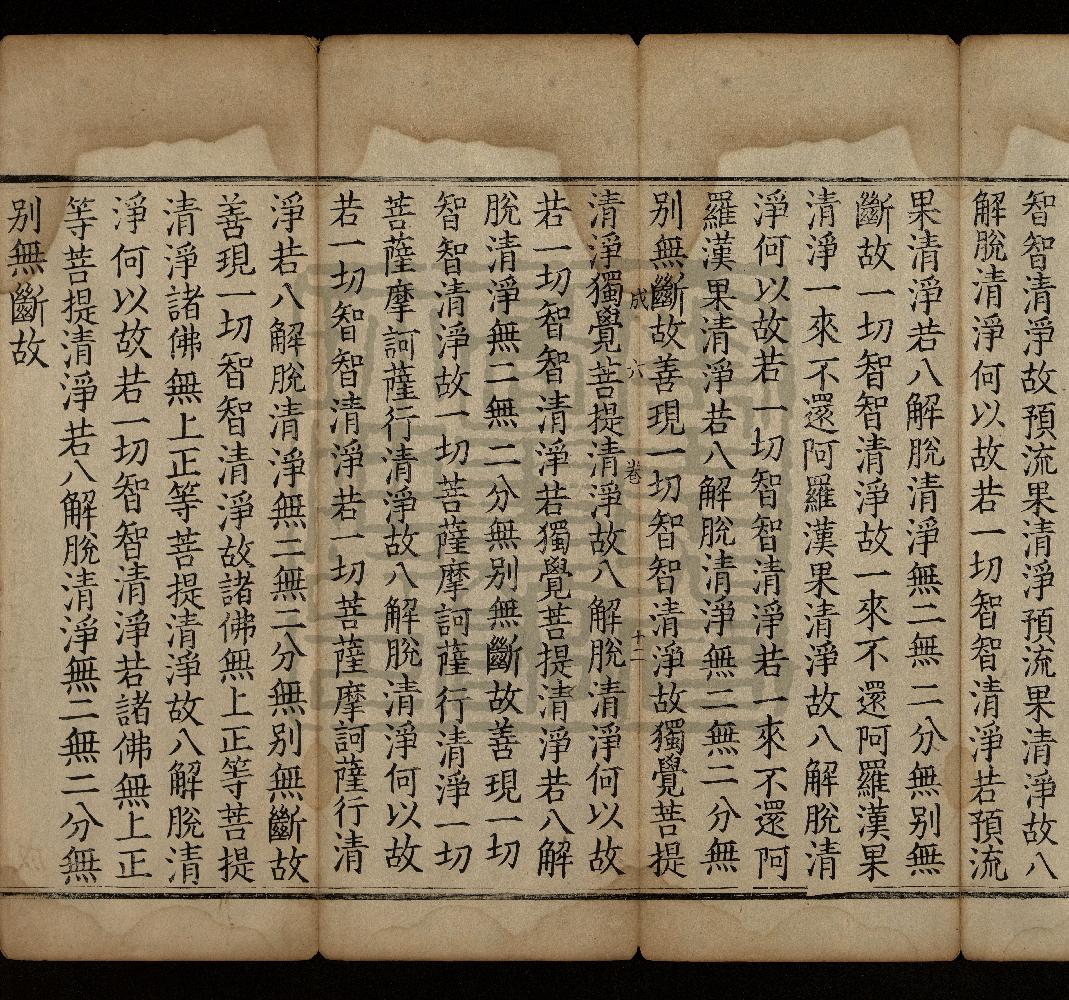 智智清淨故預流果清淨預流果清淨故八
解脫清淨何以故若一切智智清淨若預流
果清淨若八解脫清淨無二無二分無別無
斷故一切智智清淨故一來不還阿羅漢果
清淨一來不還阿羅漢果清淨故八解脫清
淨何以故若一切智智清淨若一來不還阿
羅漢果清淨若八解脫清淨無二無二分無
別無斷故善現一切智智清淨故獨覺菩提
成 六 卷 十二
清淨獨覺菩提清淨故八解脫清淨何以故
若一切智智清淨若獨覺菩提清淨若八解
脫清淨無二無二分無別無斷故善現一切
智智清淨故一切菩薩摩訶薩行清淨一切
菩薩摩訶薩行清淨故八解脫清淨何以故
若一切智智清淨若一切菩薩摩訶薩行清
淨若八解脫清淨無二無二分無別無斷故
善現一切智智清淨故諸佛無上正等菩提
清淨諸佛無上正等菩提清淨故八解脫清
淨何以故若一切智智清淨若諸佛無上正
等菩提清淨若八解脫清淨無二無二分無
別無斷故